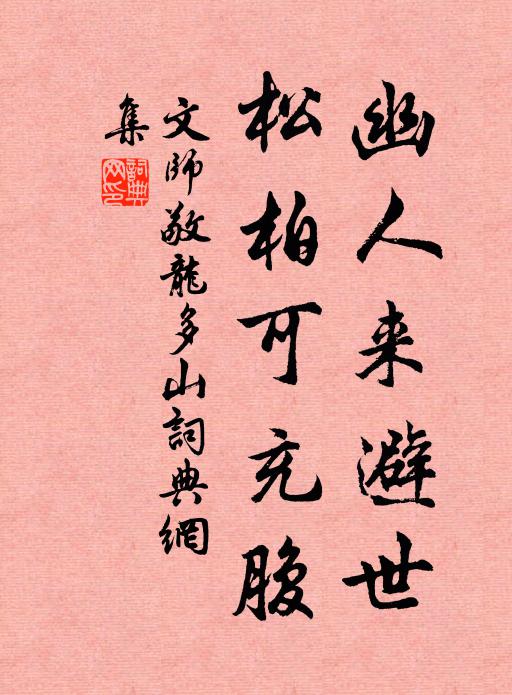 幽人来避世
松柏可充腹
文師敬龍多山詞典網
集
詞典網印